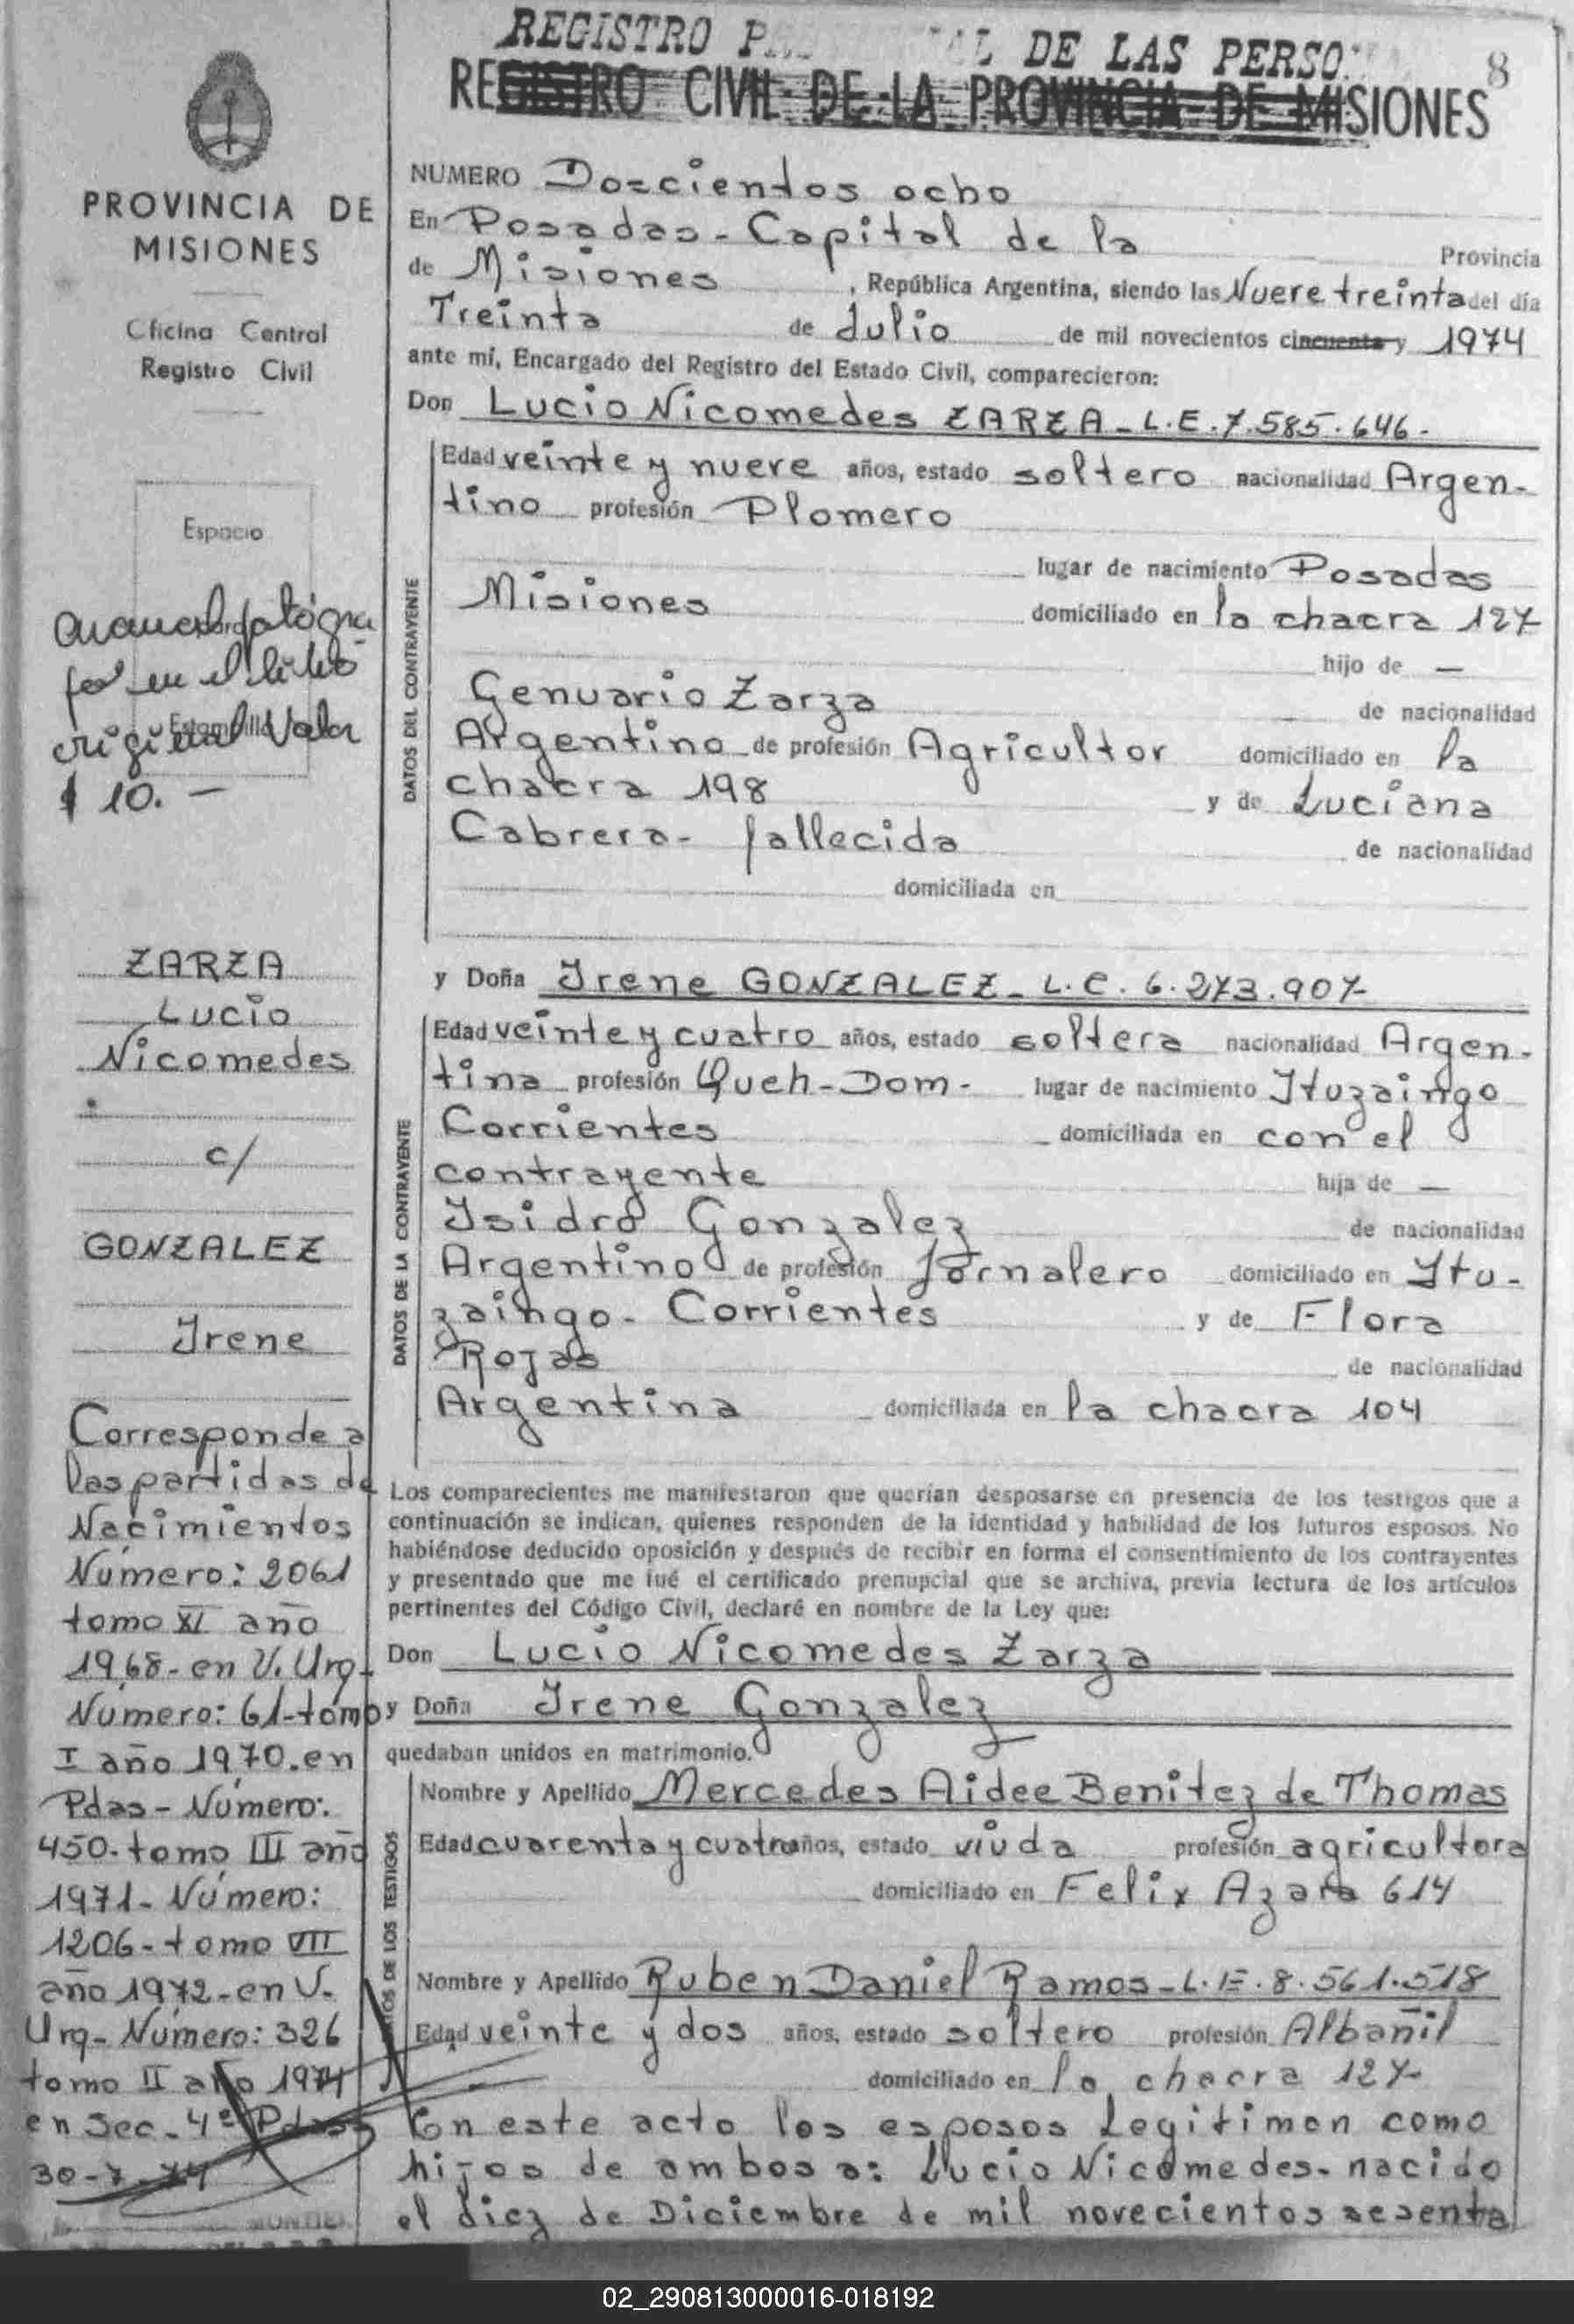 REGISTRO P DE LAS PERSO
REGISTRO CIVIL DE LA PROVINCIA DE MISIONES
8
PROVINCIA DE
MISIONES
Oficina Central
Registro Civil
Espacio
en el libro
original Valor
Estampilla
$ 10. —
ZARZA
Lucio
Nicomedes
c/
GONZALEZ
Irene
Corresponde a
las partidas de
Nacimientos
Número: 2061
tomo XI año
1968- en V. Urq-
Número: 61-tomo
I año 1970. en
Pdas - Número:
450. tomo III año
1971- Número:
1206 - tomo VII
año 1972- en V.
Urq- Número: 326
tomo II año 1974
en Sec. 4ª Pdas
30-7-74
NUMERO Doscientos ocho
En Posadas - Capital de la Provincia
de Misiones , República Argentina, siendo las Nueve treinta del día
Treinta de Julio de mil novecientos cincuenta y 1974
ante mí, Encargado del Registro del Estado Civil, comparecieron:
Don Lucio Nicomedes ZARZA - L.E. 7.585.646.
DATOS DEL CONTRAYENTE
Edad veinte y nueve años, estado soltero nacionalidad Argen-
tino profesión Plomero
lugar de nacimiento Posadas
Misiones domiciliado en la chacra 127
hijo de —
Genuario Zarza de nacionalidad
Argentino de profesión Agricultor domiciliado en la
chacra 198 y de Luciana
Cabrera- fallecida de nacionalidad
domiciliada en
y Doña Irene GONZALEZ - L.C. 6.273.907
DATOS DE LA CONTRAYENTE
Edad veinte y cuatro años, estado soltera nacionalidad Argen-
tina profesión Queh-Dom- lugar de nacimiento Ituzaingo
Corrientes domiciliada en con el
contrayente hija de —
Isidro Gonzalez de nacionalidad
Argentino de profesión Jornalero domiciliado en Itu-
zaingo- Corrientes y de Flora
Rojas de nacionalidad
Argentina domiciliada en la chacra 104
Los comparecientes me manifestaron que querían desposarse en presencia de los testigos que a
continuación se indican, quienes responden de la identidad y habilidad de los futuros esposos. No
habiéndose deducido oposición y después de recibir en forma el consentimiento de los contrayentes
y presentado que me fué el certificado prenupcial que se archiva, previa lectura de los artículos
pertinentes del Código Civil, declaré en nombre de la Ley que:
Don Lucio Nicomedes Zarza
y Doña Irene Gonzalez
quedaban unidos en matrimonio.
DATOS DE LOS TESTIGOS
Nombre y Apellido Mercedes Aidee Benitez de Thomas
Edad cuarenta y cuatro años, estado viuda profesión agricultora
domiciliado en Felix Azara 614
Nombre y Apellido Ruben Daniel Ramos - L.E. 8.561.518
Edad veinte y dos años, estado soltero profesión Albañil
domiciliado en la chacra 127
En este acto los esposos Legitiman como
hijos de ambos a: Lucio Nicomedes- nacido
el diez de Diciembre de mil novecientos sesenta
02_290813000016-018192